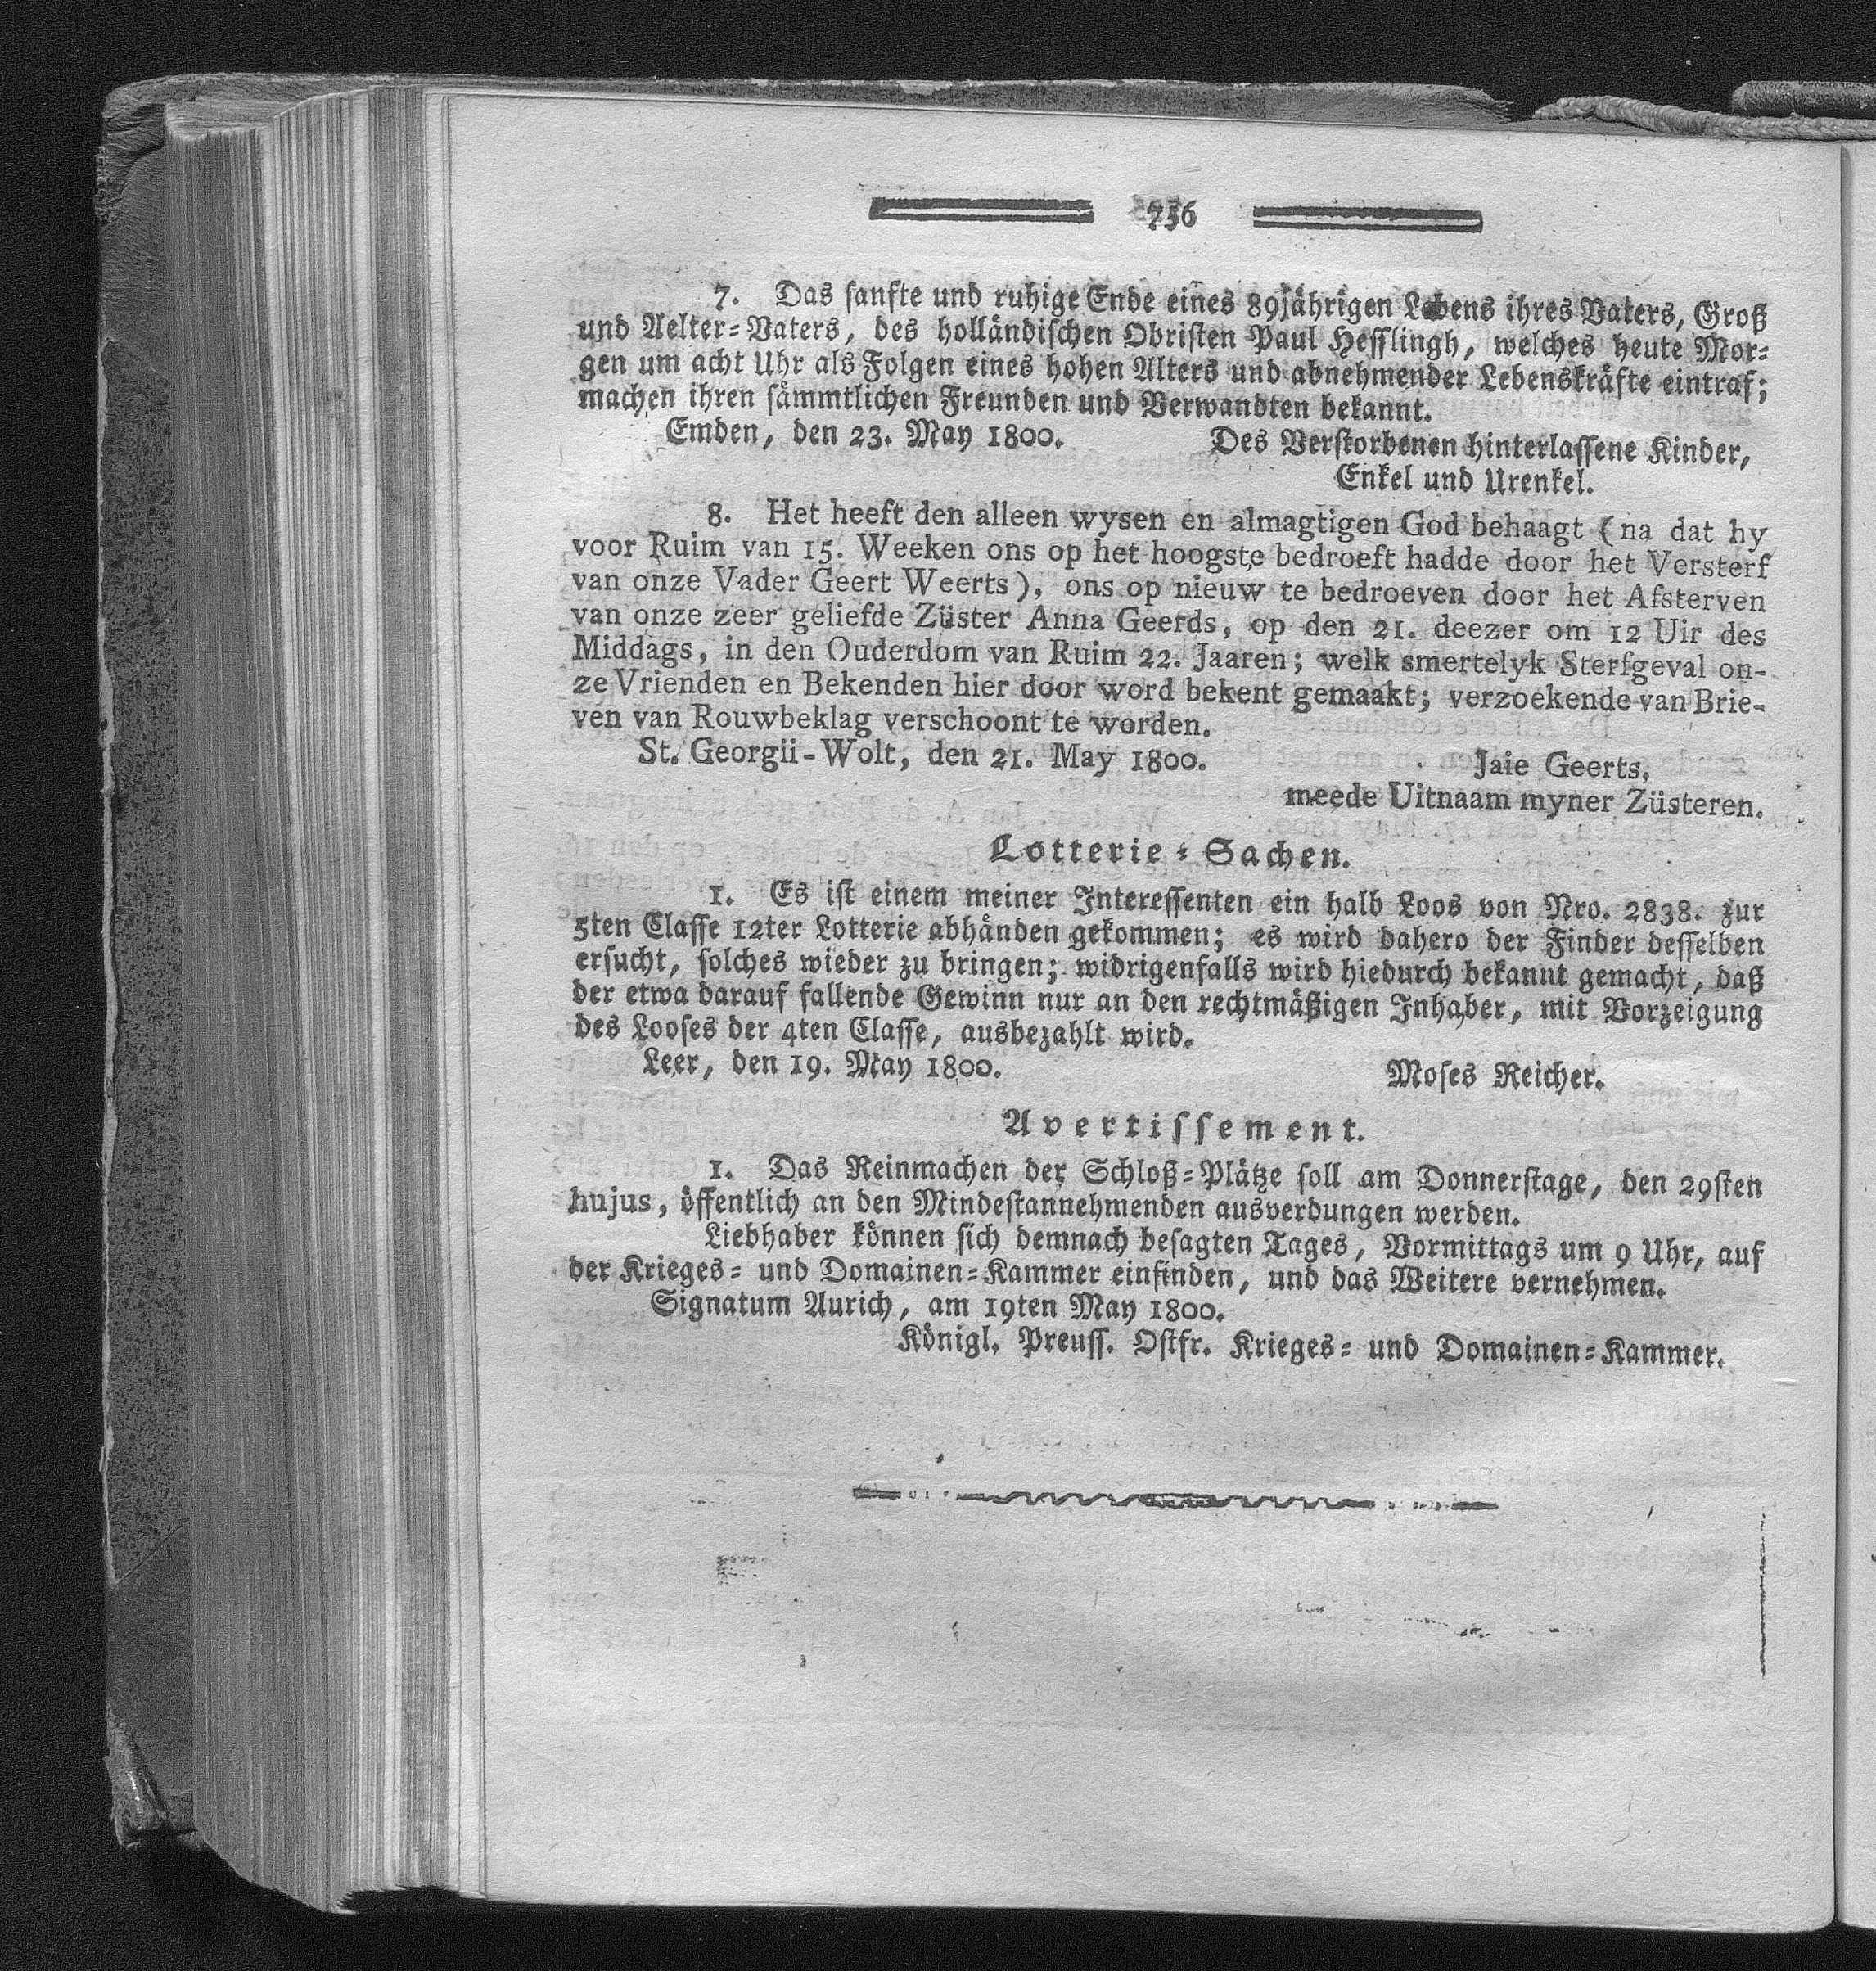 736
7. Das sanfte und ruhige Ende eines 89jährigen Lebens ihres Vaters, Groß
und Aelter-Vaters, des holländischen Obristen Paul Hesslingh, welches heute Mor-
gen um acht Uhr als Folgen eines hohen Alters und abnehmender Lebenskräfte eintraf;
machen ihren sämmtlichen Freunden und Verwandten bekannt.
Emden, den 23. May 1800. Des Verstorbenen hinterlassene Kinder,
Enkel und Urenkel.
8. Het heeft den alleen wysen en almagtigen God behaagt (na dat hy
voor Ruim van 15. Weeken ons op het hoogste bedroeft hadde door het Versterf
van onze Vader Geert Weerts), ons op nieuw te bedroeven door het Afsterven
van onze zeer geliefde Züster Anna Geerds, op den 21. deezer om 12 Uir des
Middags, in den Ouderdom van Ruim 22. Jaaren; welk smertelyk Sterfgeval on-
ze Vrienden en Bekenden hier door word bekent gemaakt; verzoekende van Brie-
ven van Rouwbeklag verschoont te worden.
St. Georgii-Wolt, den 21. May 1800. Jaie Geerts,
meede Uitnaam myner Züsteren.
Lotterie-Sachen.
1. Es ist einem meiner Interessenten ein halb Loos von Nro. 2838. zur
5ten Classe 12ter Lotterie abhänden gekommen; es wird dahero der Finder desselben
ersucht, solches wieder zu bringen; widrigenfalls wird hiedurch bekannt gemacht, daß
der etwa darauf fallende Gewinn nur an den rechtmäßigen Inhaber, mit Vorzeigung
des Looses der 4ten Classe, ausbezahlt wird.
Leer, den 19. May 1800. Moses Reicher.
Avertissement.
1. Das Reinmachen der Schloß-Plätze soll am Donnerstage, den 29sten
hujus, öffentlich an den Mindestannehmenden ausverdungen werden.
Liebhaber können sich demnach besagten Tages, Vormittags um 9 Uhr, auf
der Krieges- und Domainen-Kammer einfinden, und das Weitere vernehmen.
Signatum Aurich, am 19ten May 1800.
Königl. Preuss. Ostfr. Krieges- und Domainen-Kammer.